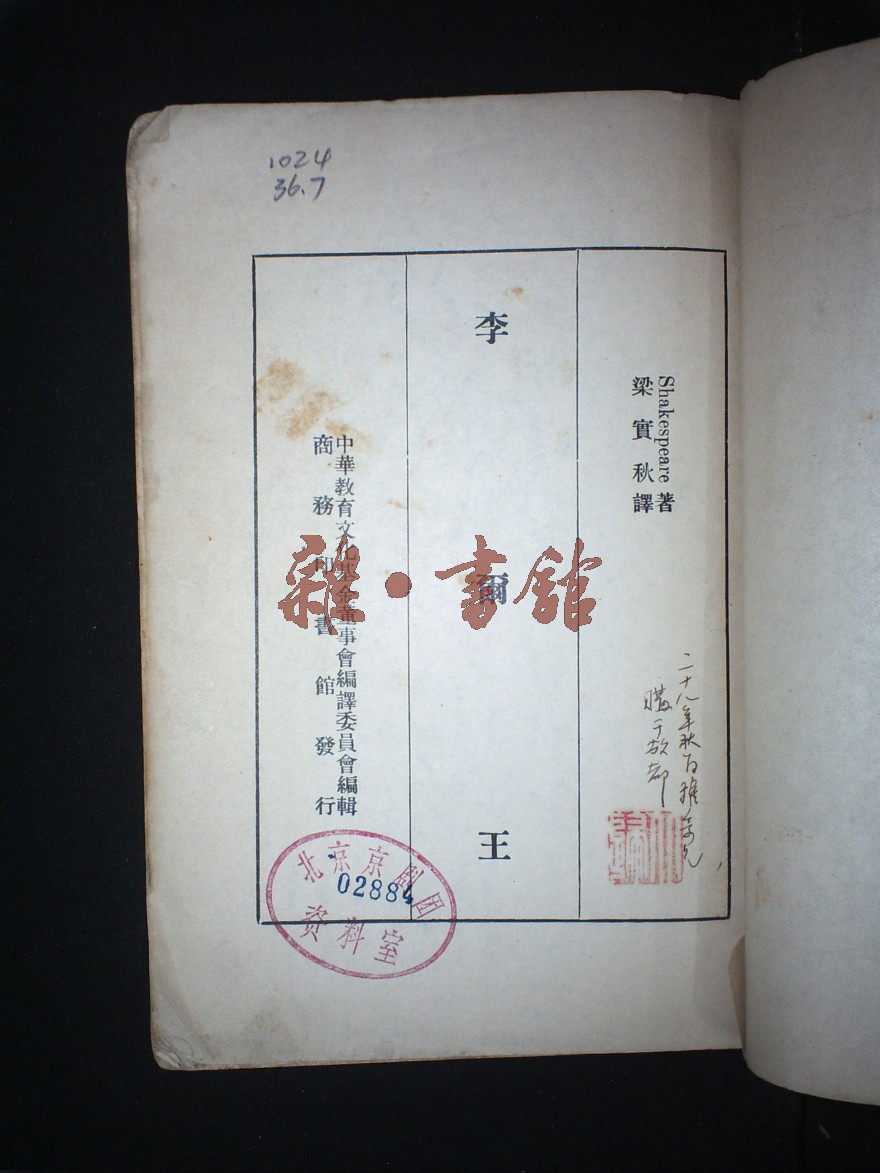 1024
36.7
Shakespeare 著
梁實秋譯
李爾王
中華教育文化基金董事會編譯委員會編輯
商務印書館發行
二十八年秋百
于故都
北京京剧团
02884
资料室
雜·書館